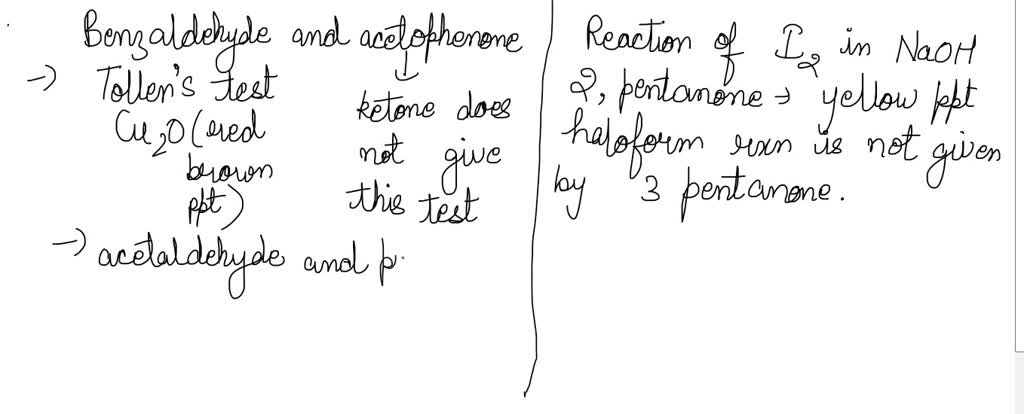 Benzaldehyde and acetophenone
→ Tollen's test
Cu₂O (red
brown
ppt)
↓
ketone does
not give
this test
→ acetaldehyde and p
Reaction of I₂ in NaOH
2, pentanone → yellow ppt
haloform rxn is not given
by 3 pentanone.